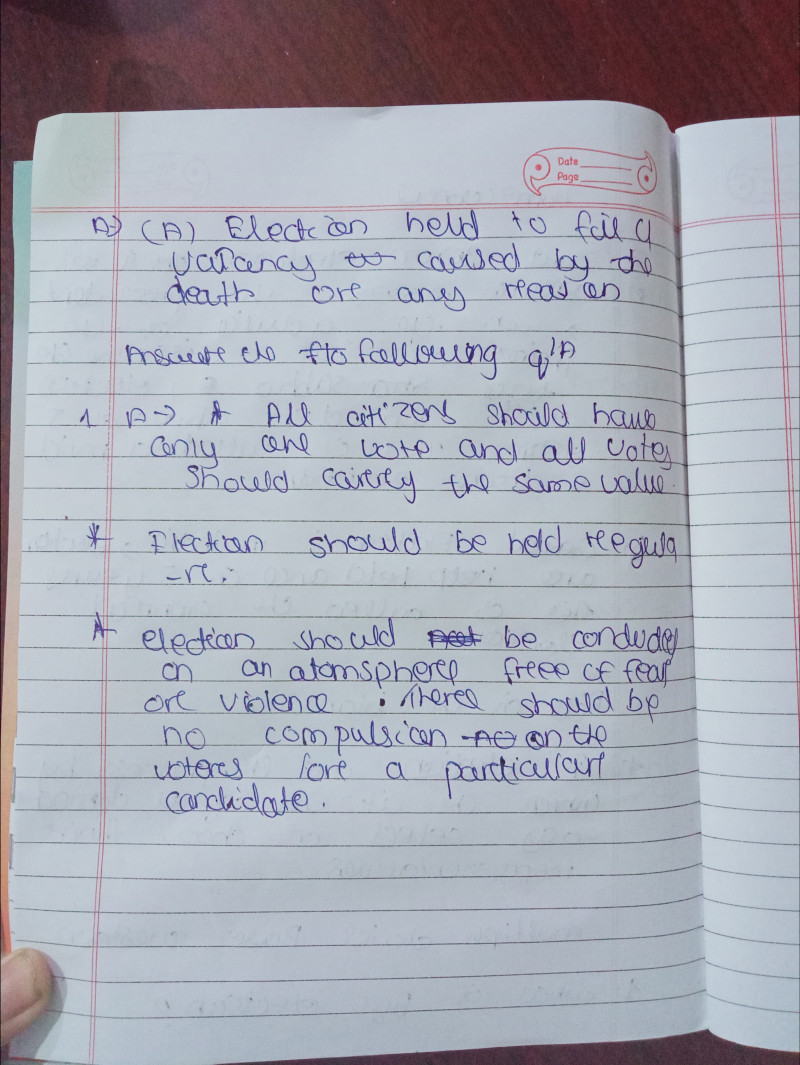 Date
Page
A) (A) Election held to fill a
vacancy caused by the
death ore any reason
Answere the following q'A
1. A→ * All citizens should have
only one vote and all votes
should cairery the same value.
* Election should be held reegula
-re.
* election should be conducted
on an atomspheree freee of fear
ore violence. Theree should be
no compulsion on the
voteres fore a particulare
candidate.